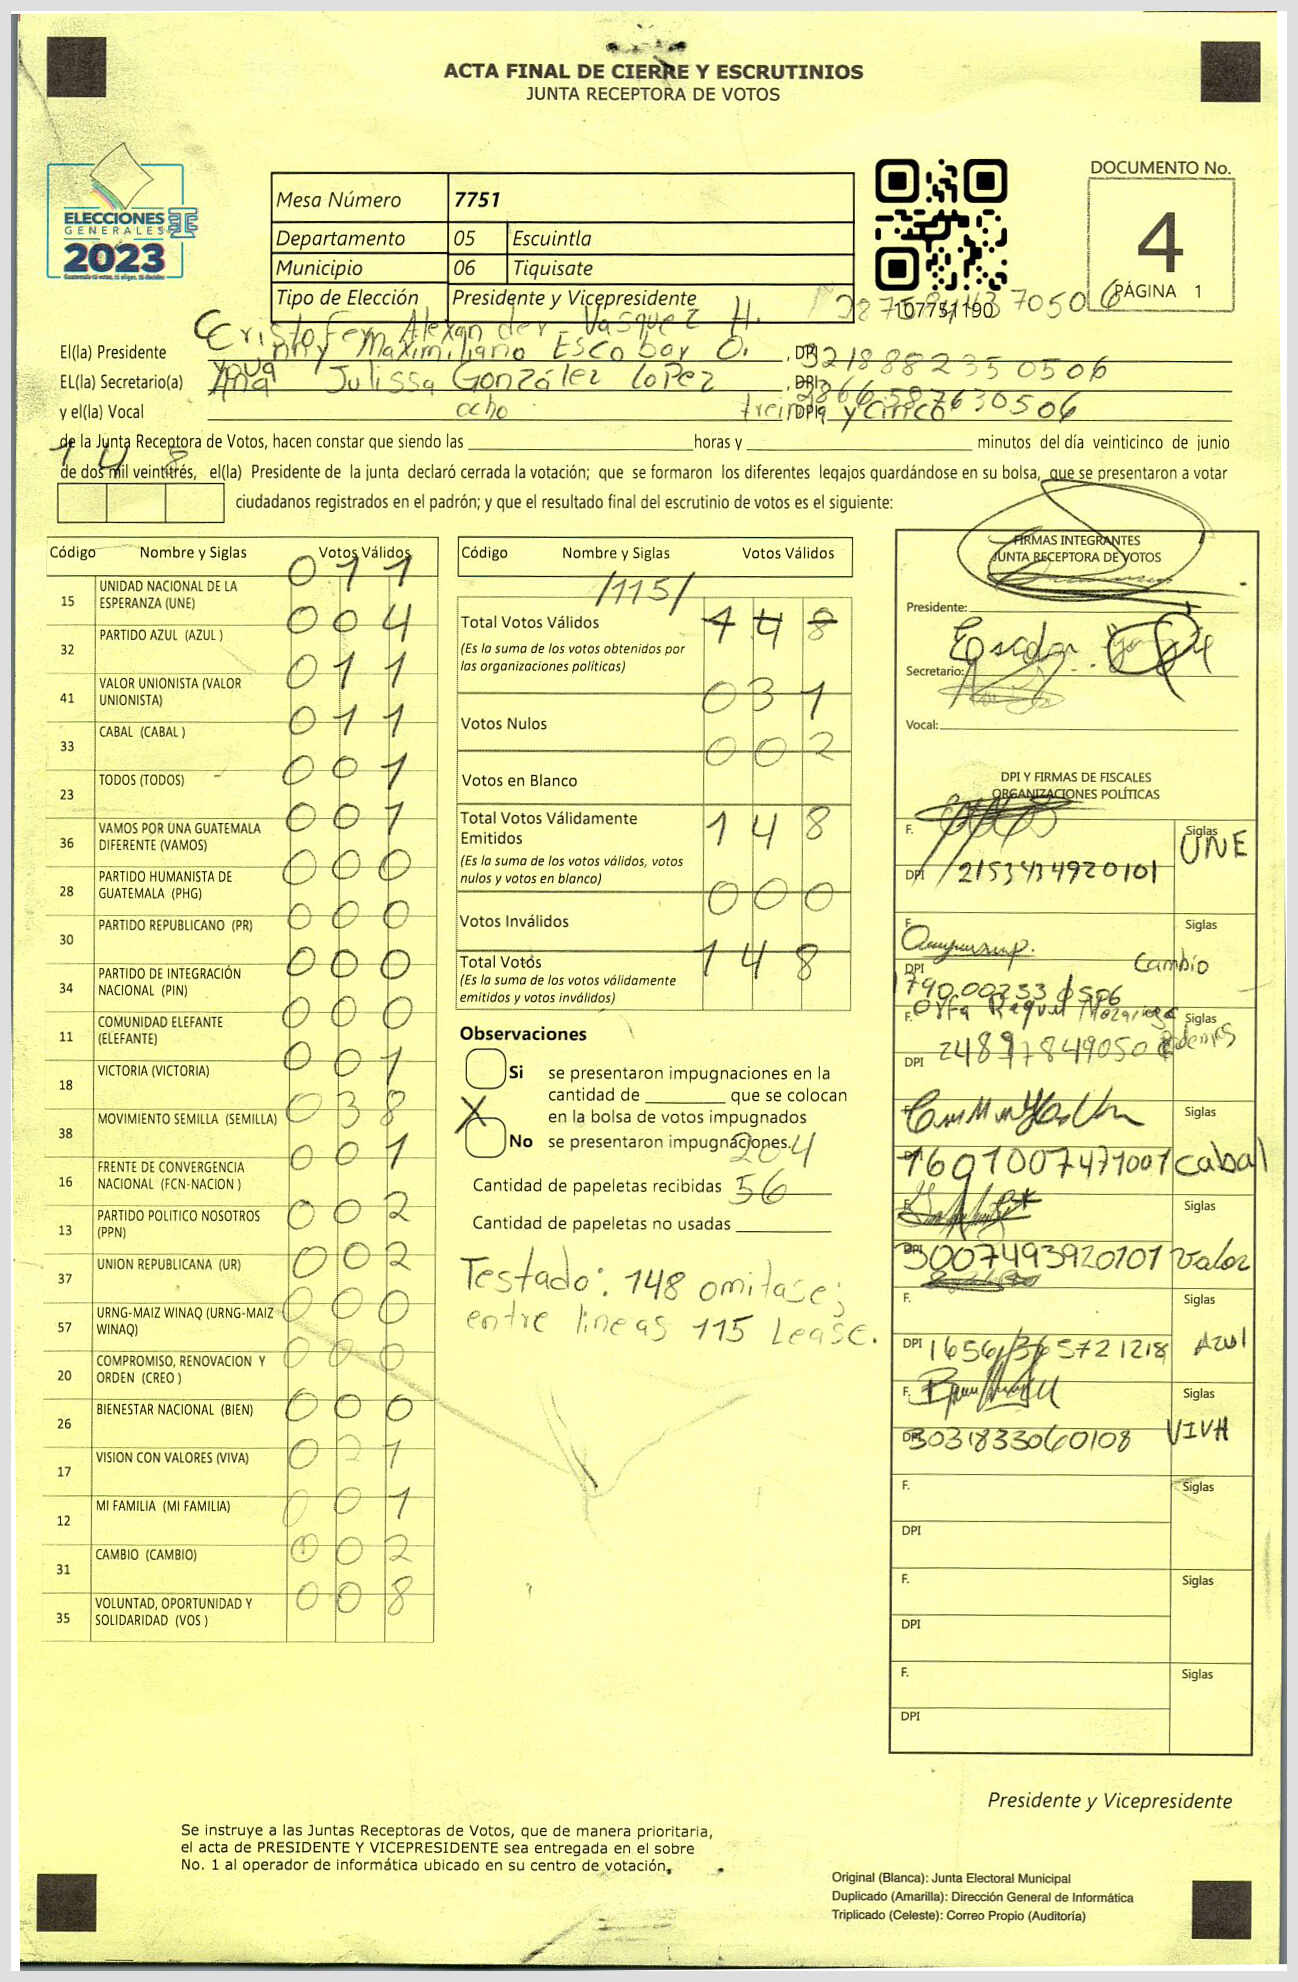 ACTA FINAL DE CIERRE Y ESCRUTINIOS
JUNTA RECEPTORA DE VOTOS
ELECCIONES
GENERALES
2023
Mesa Número 7751
Departamento 05 Escuintla
Municipio 06 Tiquisate
Tipo de Elección Presidente y Vicepresidente
107751190
DOCUMENTO No.
4
PÁGINA 1
Cristofer Alexander Vasquez H.
El(la) Presidente Maximiliano Escobar O. , DPI 3218882350506
EL(la) Secretario(a) Ana Julissa González LoPez , DPI
y el(la) Vocal ocho treinta y cinco DPI
de la Junta Receptora de Votos, hacen constar que siendo las horas y minutos del día veinticinco de junio
de dos mil veintitrés, el(la) Presidente de la junta declaró cerrada la votación; que se formaron los diferentes legajos guardándose en su bolsa, que se presentaron a votar
148 ciudadanos registrados en el padrón; y que el resultado final del escrutinio de votos es el siguiente:
Código Nombre y Siglas Votos Válidos
15 UNIDAD NACIONAL DE LA ESPERANZA (UNE) 011
32 PARTIDO AZUL (AZUL ) 004
41 VALOR UNIONISTA (VALOR UNIONISTA) 011
33 CABAL (CABAL ) 011
23 TODOS (TODOS) 001
36 VAMOS POR UNA GUATEMALA DIFERENTE (VAMOS) 001
28 PARTIDO HUMANISTA DE GUATEMALA (PHG) 000
30 PARTIDO REPUBLICANO (PR) 000
34 PARTIDO DE INTEGRACIÓN NACIONAL (PIN) 000
11 COMUNIDAD ELEFANTE (ELEFANTE) 000
18 VICTORIA (VICTORIA) 001
38 MOVIMIENTO SEMILLA (SEMILLA) 038
16 FRENTE DE CONVERGENCIA NACIONAL (FCN-NACION ) 001
13 PARTIDO POLITICO NOSOTROS (PPN) 002
37 UNION REPUBLICANA (UR) 002
57 URNG-MAIZ WINAQ (URNG-MAIZ WINAQ) 000
20 COMPROMISO, RENOVACION Y ORDEN (CREO ) 000
26 BIENESTAR NACIONAL (BIEN) 000
17 VISION CON VALORES (VIVA) 021
12 MI FAMILIA (MI FAMILIA) 001
31 CAMBIO (CAMBIO) 002
35 VOLUNTAD, OPORTUNIDAD Y SOLIDARIDAD (VOS ) 008
Código Nombre y Siglas Votos Válidos
/115/
Total Votos Válidos 148
(Es la suma de los votos obtenidos por
las organizaciones políticas)
Votos Nulos 031
Votos en Blanco 002
Total Votos Válidamente
Emitidos 148
(Es la suma de los votos válidos, votos
nulos y votos en blanco)
Votos Inválidos 000
Total Votos 148
(Es la suma de los votos válidamente
emitidos y votos inválidos)
Observaciones
Si se presentaron impugnaciones en la
cantidad de que se colocan
en la bolsa de votos impugnados
X
No se presentaron impugnaciones.
204
Cantidad de papeletas recibidas
56
Cantidad de papeletas no usadas
Testado: 148 omitase;
entre lineas 115 Lease.
FIRMAS INTEGRANTES
JUNTA RECEPTORA DE VOTOS
Presidente:
Secretario:
Vocal:
DPI Y FIRMAS DE FISCALES
ORGANIZACIONES POLÍTICAS
F. Siglas
UNE
DPI 2153434920101
F. Siglas
Cambio
DPI
F. Siglas
DPI
Siglas
1601007471001 Cabal
Siglas
DPI 3007493920101 Valor
F. Siglas
Azul
DPI
F. Siglas
VIVA
DPI 3031833060108
F. Siglas
DPI
F. Siglas
DPI
F. Siglas
DPI
Presidente y Vicepresidente
Se instruye a las Juntas Receptoras de Votos, que de manera prioritaria,
el acta de PRESIDENTE Y VICEPRESIDENTE sea entregada en el sobre
No. 1 al operador de informática ubicado en su centro de votación.
Original (Blanca): Junta Electoral Municipal
Duplicado (Amarilla): Dirección General de Informática
Triplicado (Celeste): Correo Propio (Auditoría)